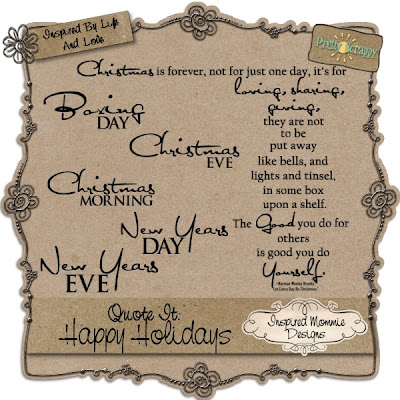 Inspired By Life
And Love
Pretty Scrappy
Christmas is forever, not for just one day, it's for
loving, sharing,
giving,
they are not
to be
put away
like bells, and
lights and tinsel,
in some box
upon a shelf.
The Good you do for
others
is good you do
Yourself.
~Norman Wesley Brooks,
"Let Every Day Be Christmas"
Boxing
DAY
Christmas
EVE
Christmas
MORNING
New Years
DAY
New Years
EVE
Quote It:
Happy Holidays
Inspired Mommie
Designs